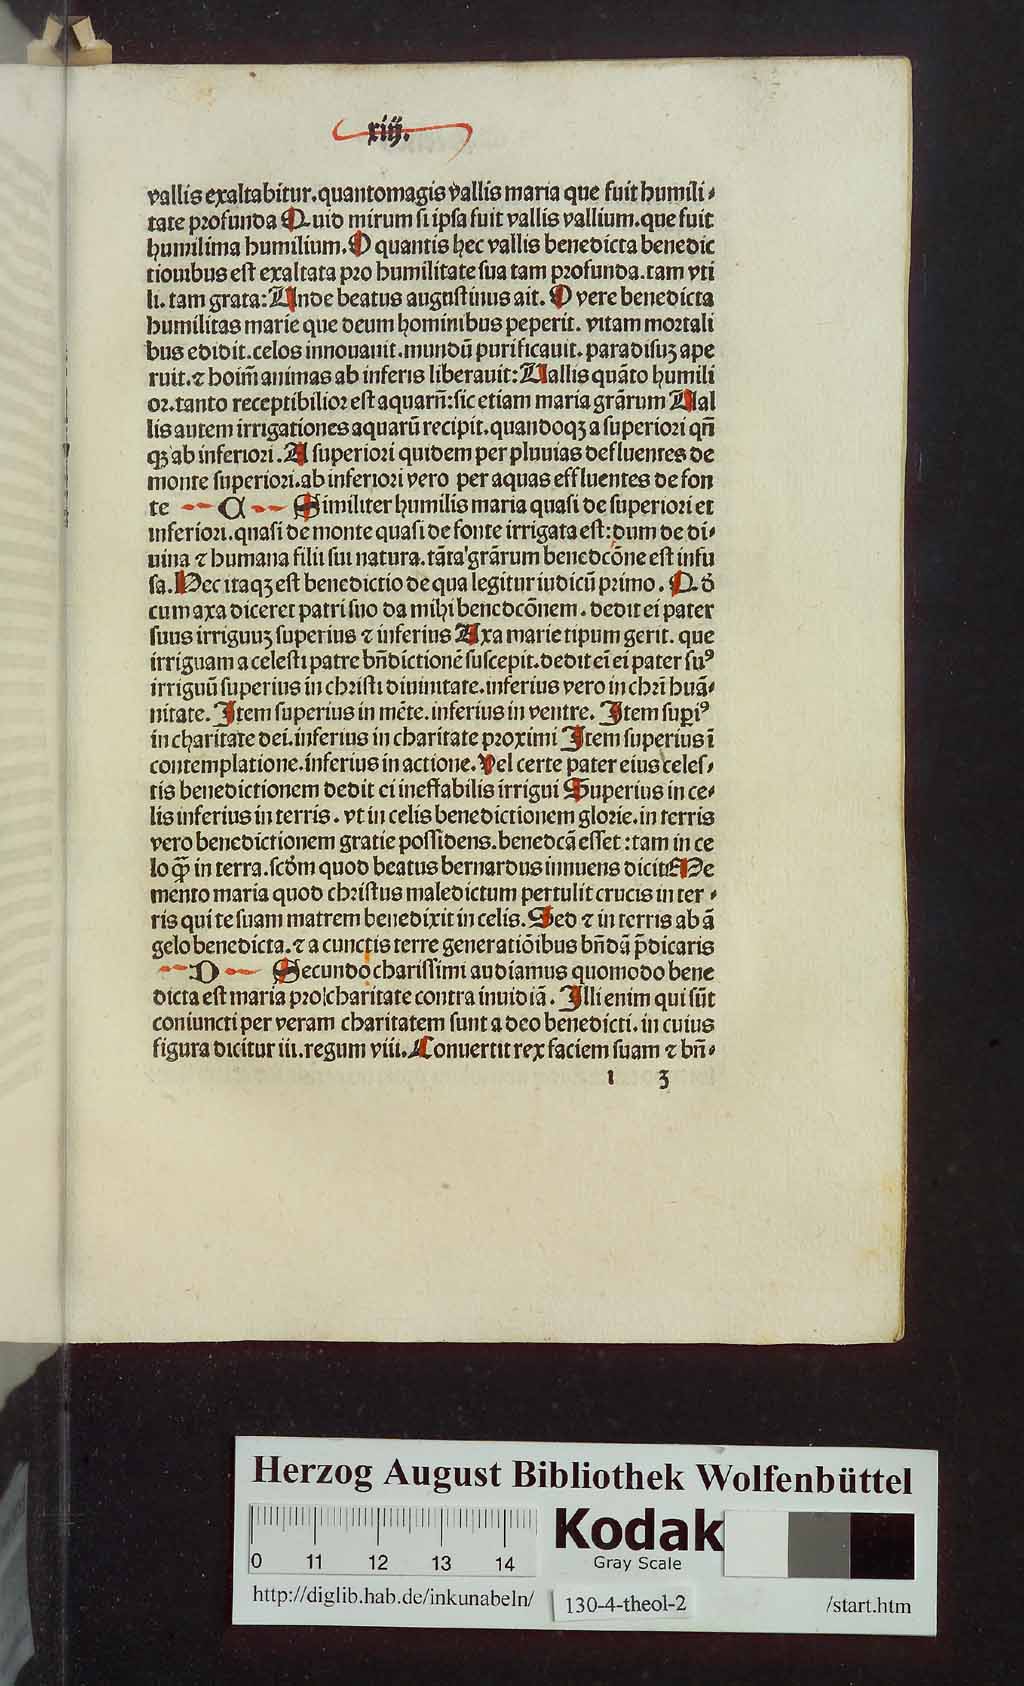 xiij.
vallis exaltabitur.quantomagis vallis maria que fuit humili⸗
tate profunda Quid mirum si ipsa fuit vallis vallium.que fuit
humilima humilium. O quantis hec vallis benedicta benedic
tionibus est exaltata pro humilitate sua tam profunda.tam vti
li. tam grata: Unde beatus augustinus ait. O vere benedicta
humilitas marie que deum hominibus peperit. vitam mortali
bus edidit.celos innouauit.mundū purificauit. paradisuꝫ ape
ruit.⁊ hoim̄ animas ab inferis liberauit: Uallis quāto humili
or.tanto receptibilior est aquarū:sic etiam maria grārum Ual
lis autem irrigationes aquarū recipit.quandoqꝫ a superiori qn̄
qꝫ ab inferiori. A superiori quidem per pluuias defluentes de
monte superiori.ab inferiori vero per aquas effluentes de fon
te C Similiter humilis maria quasi de superiori et
inferiori.quasi de monte quasi de fonte irrigata est:dum de di⸗
uina ⁊ humana filii sui natura. tāta grārum benedcōne est infu
sa. Hec itaqꝫ est benedictio de qua legitur iudicū primo. Q. ō
cum axa diceret patri suo da mihi benedcōnem. dedit ei pater
suus irriguuꝫ superius ⁊ inferius Axa marie tipum gerit. que
irriguam a celesti patre bn̄dictionē suscepit.dedit eī ei pater suꝰ
irriguū superius in christi diuinitate.inferius vero in chrī huā⸗
nitate. Item superius in mēte.inferius in ventre. Item supiꝰ
in charitate dei.inferius in charitate proximi Item superius ī
contemplatione.inferius in actione. Vel certe pater eius celes⸗
tis benedictionem dedit ei ineffabilis irrigui Superius in ce⸗
lis inferius in terris. vt in celis benedictionem glorie.in terris
vero benedictionem gratie possidens.benedcā esset:tam in ce
lo qꝫ̄ in terra.scōm quod beatus bernardus innuens dicit: Me
mento maria quod christus maledictum pertulit crucis in ter⸗
ris qui te suam matrem benedixit in celis. Sed ⁊ in terris ab ā
gelo benedicta.⁊ a cunctis terre generatiōibus bn̄dā p̄dicaris
D Secundo charissimi audiamus quomodo bene
dicta est maria pro charitate contra inuidiā. Illi enim qui sūt
coniuncti per veram charitatem sunt a deo benedicti. in cuius
figura dicitur iii.regum viii. Conuertit rex faciem suam ⁊ bn̄⸗
l 3
Herzog August Bibliothek Wolfenbüttel
0 11 12 13 14
Kodak
Gray Scale
http://diglib.hab.de/inkunabeln/ 130-4-theol-2 /start.htm